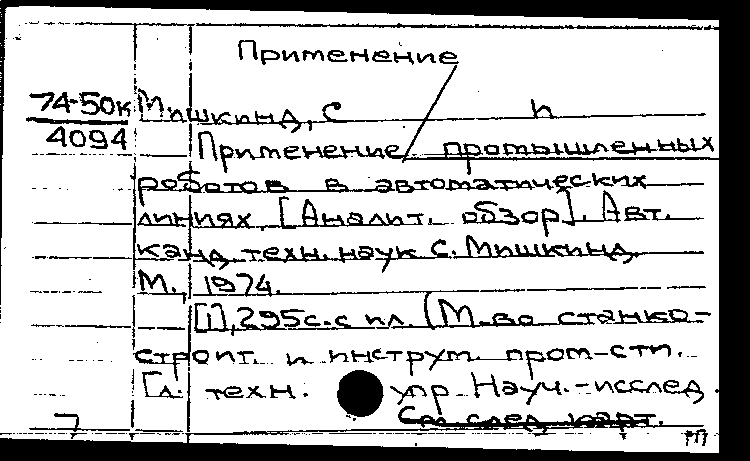 Применение
74-50к Мишкинд, С П
4094 Применение промышленных
роботов в автоматических
линиях. [Аналит. обзор]. Авт.
канд. техн. наук С. Мишкинд.
М., 1974.
[1], 295с. с ил. (М-во станко-
строит. и инструм. пром-сти.
Гл. техн. упр. Науч.-исслед.
См. след. карт.
7 РП